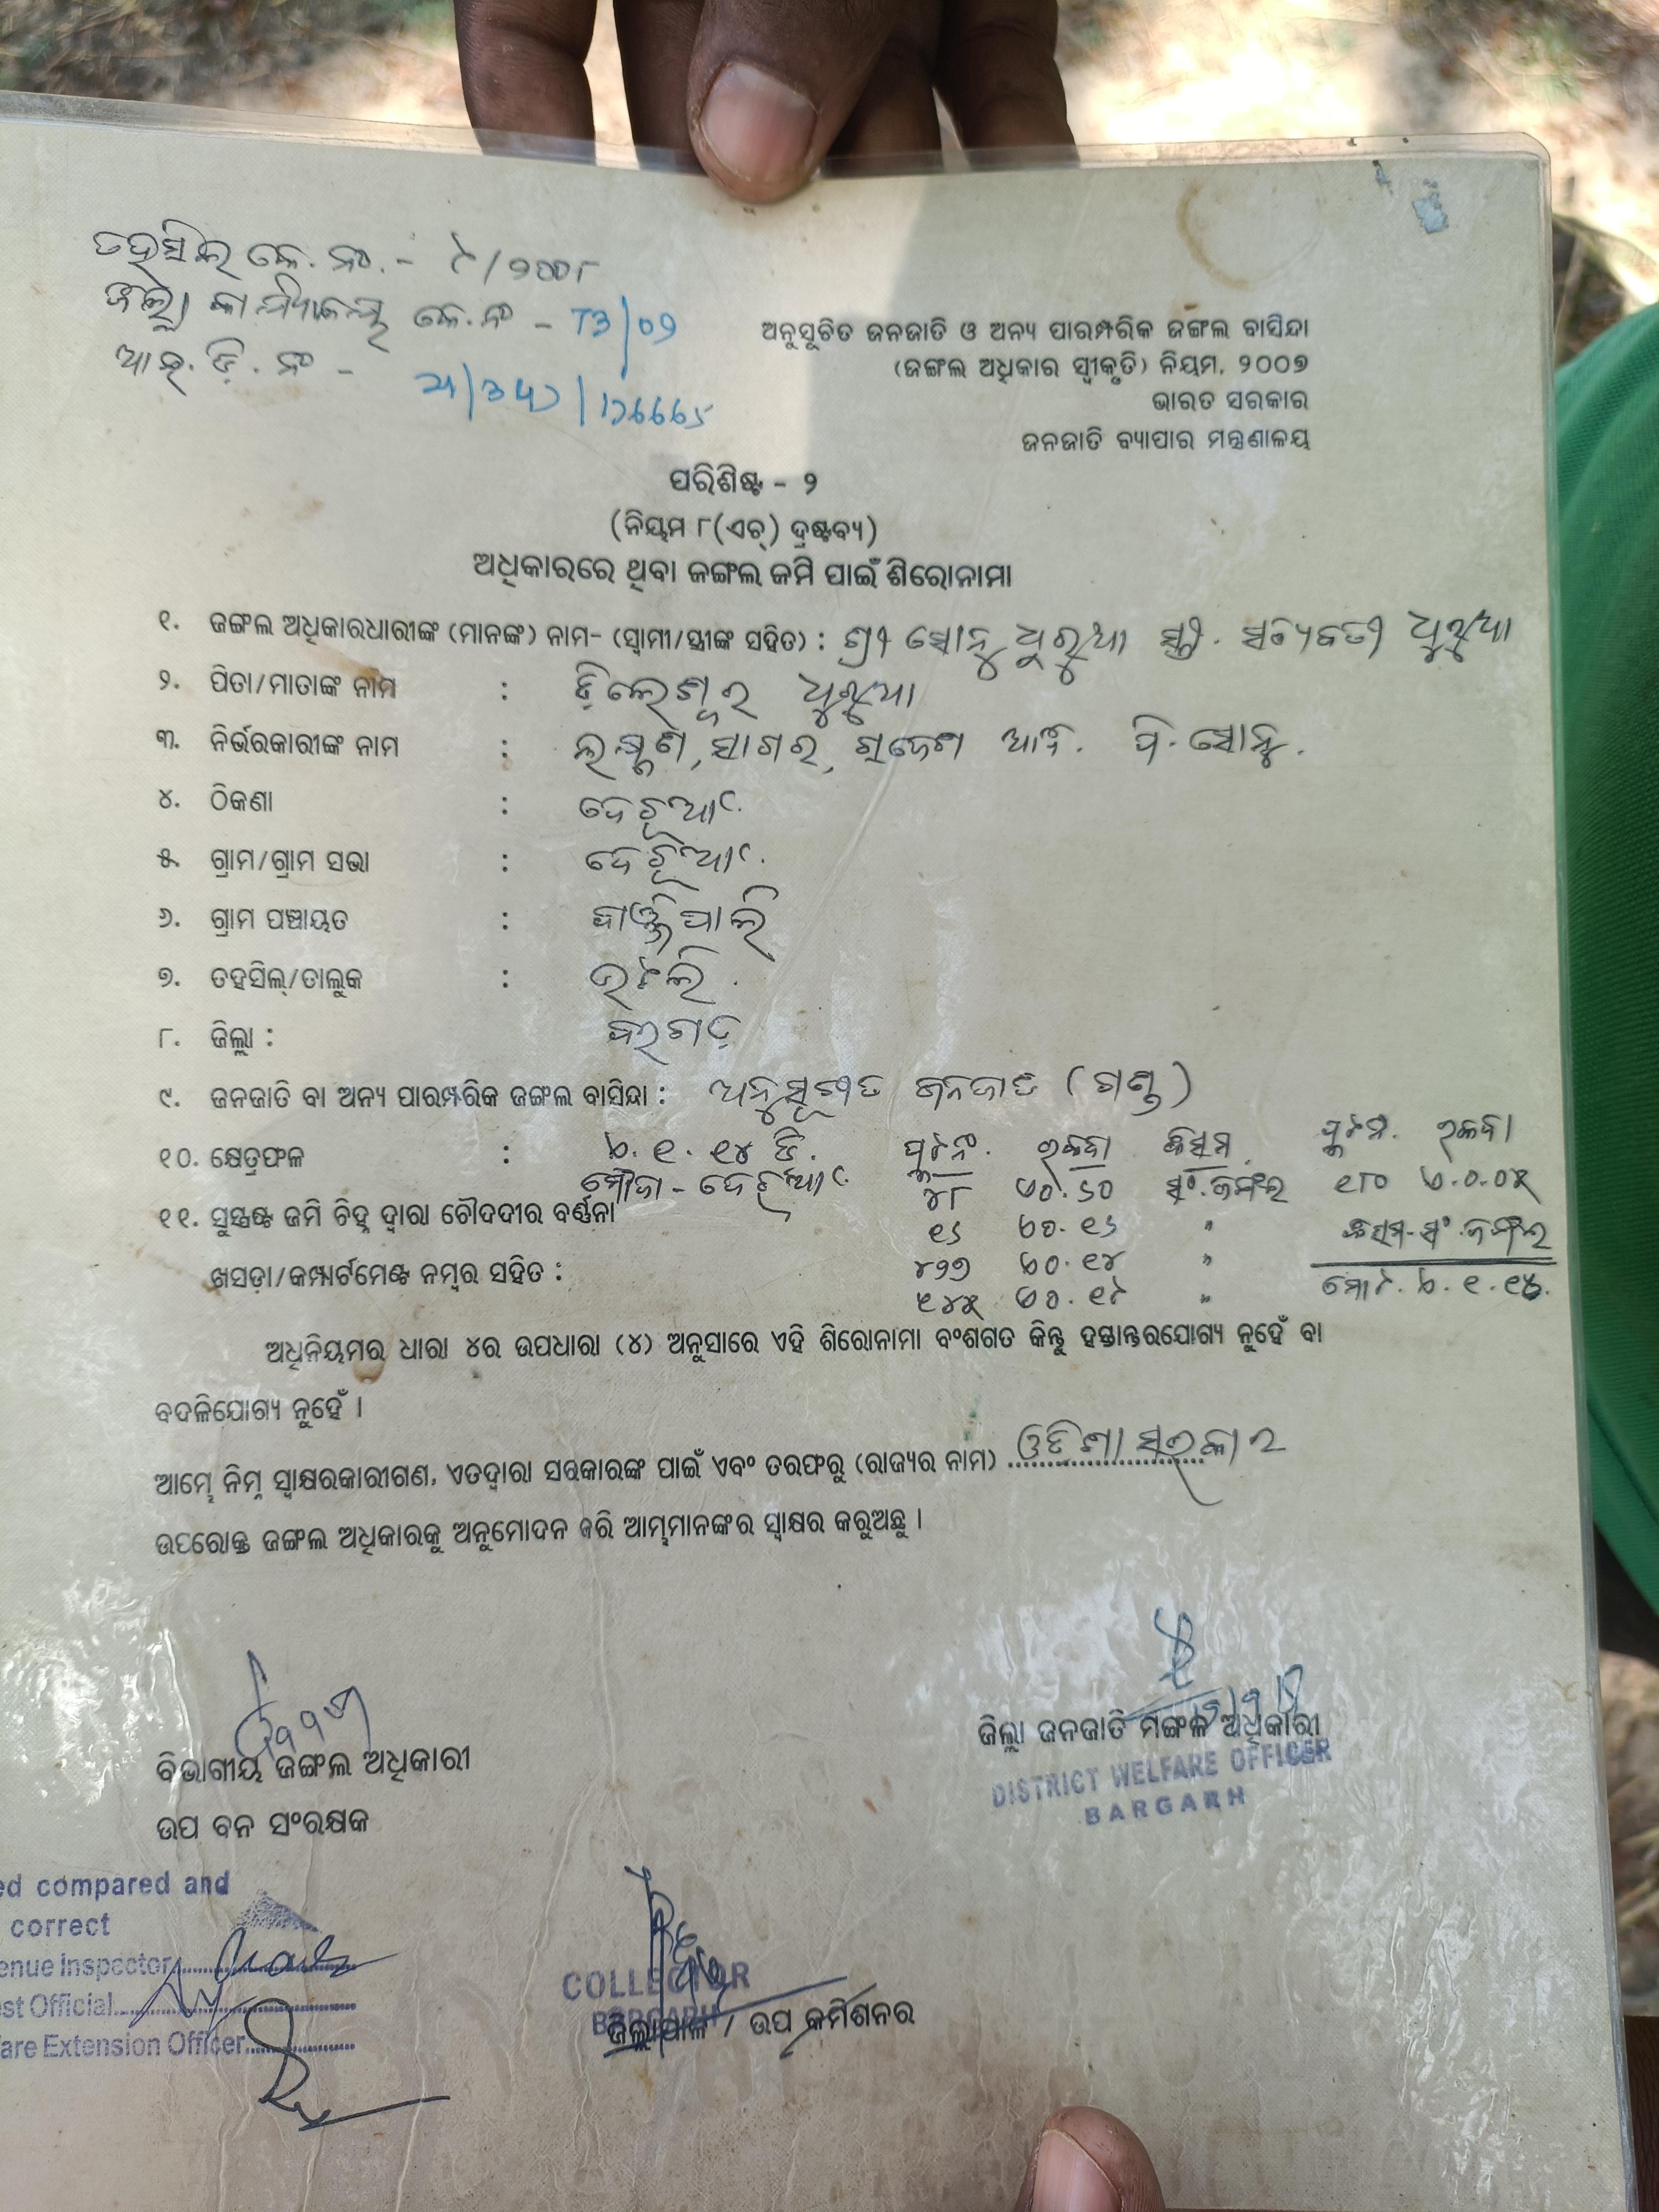 ତହସିଲ କେ. ନଂ. - ୯/୨୦୦୮
ଜିଲ୍ଲା କାର୍ଯ୍ୟାଳୟ କେ. ନଂ -
ଆଇ. ଡି. ନଂ -
ଅନୁସୂଚିତ ଜନଜାତି ଓ ଅନ୍ୟ ପାରମ୍ପରିକ ଜଙ୍ଗଲ ବାସିନ୍ଦା
(ଜଙ୍ଗଲ ଅଧିକାର ସ୍ୱୀକୃତି) ନିୟମ, ୨୦୦୭
ଭାରତ ସରକାର
ଜନଜାତି ବ୍ୟାପାର ମନ୍ତ୍ରଣାଳୟ
ପରିଶିଷ୍ଟ - ୨
(ନିୟମ ୮(ଏଚ୍) ଦ୍ରଷ୍ଟବ୍ୟ)
ଅଧିକାରରେ ଥିବା ଜଙ୍ଗଲ ଜମି ପାଇଁ ଶିରୋନାମା
୧. ଜଙ୍ଗଲ ଅଧିକାରଧାରୀଙ୍କ (ମାନଙ୍କ) ନାମ- (ସ୍ୱାମୀ/ସ୍ତ୍ରୀଙ୍କ ସହିତ) : ଶ୍ରୀ ସୋନୁ ଧୁରୁଆ ସ୍ତ୍ରୀ. ସତ୍ୟବତୀ ଧୁରୁଆ
୨. ପିତା/ମାତାଙ୍କ ନାମ : ଡ଼ିଲେଶ୍ୱର ଧୁରୁଆ
୩. ନିର୍ଭରକାରୀଙ୍କ ନାମ : ଲକ୍ଷ୍ମଣ, ସାଗର, ପି. ସୋନୁ.
୪. ଠିକଣା :
୫. ଗ୍ରାମ/ଗ୍ରାମ ସଭା :
୬. ଗ୍ରାମ ପଞ୍ଚାୟତ :
୭. ତହସିଲ୍/ତାଲୁକ : ଭଟଲି.
୮. ଜିଲ୍ଲା : ବରଗଡ଼
୯. ଜନଜାତି ବା ଅନ୍ୟ ପାରମ୍ପରିକ ଜଙ୍ଗଲ ବାସିନ୍ଦା : ଅନୁସୂଚୀତ ଜନଜାତି (ଗଣ୍ଡ)
୧୦. କ୍ଷେତ୍ରଫଳ : ଏ. ୧. ୧୪ ଡି. ପ୍ଲଟନଂ. ରକବା କିସମ ପ୍ଲଟନଂ. ରକବା
ମୌଜା - ୪୮ ଏ୦.୬୦ ସଂ.ଜଙ୍ଗଲ ୧୮୦ ଏ.୦.୦୫
୧୧. ସୁସ୍ପଷ୍ଟ ଜମି ଚିହ୍ନ ଦ୍ୱାରା ଚୌଦଦୀର ବର୍ଣ୍ଣନା ୧୬ ଏ୦.୧୬ " କିସମ-ସଂ.ଜଙ୍ଗଲ
ଖସଡ଼ା/କମ୍ପାର୍ଟମେଣ୍ଟ ନମ୍ବର ସହିତ : ୪୨୭ ଏ୦.୧୪ " ମୋଟ. ଏ. ୧. ୧୪.
ଏ୦.୧୯ "
ଅଧିନିୟମର ଧାରା ୪ର ଉପଧାରା (୪) ଅନୁସାରେ ଏହି ଶିରୋନାମା ବଂଶଗତ କିନ୍ତୁ ହସ୍ତାନ୍ତରଯୋଗ୍ୟ ନୁହେଁ ବା
ବଦଳିଯୋଗ୍ୟ ନୁହେଁ ।
ଆମ୍ଭେ ନିମ୍ନ ସ୍ୱାକ୍ଷରକାରୀଗଣ, ଏତଦ୍ୱାରା ସରକାରଙ୍କ ପାଇଁ ଏବଂ ତରଫରୁ (ରାଜ୍ୟର ନାମ) ଓଡିଶା ସରକାର
ଉପରୋକ୍ତ ଜଙ୍ଗଲ ଅଧିକାରକୁ ଅନୁମୋଦନ କରି ଆମ୍ଭମାନଙ୍କର ସ୍ୱାକ୍ଷର କରୁଅଛୁ ।
ବିଭାଗୀୟ ଜଙ୍ଗଲ ଅଧିକାରୀ
ଉପ ବନ ସଂରକ୍ଷକ
ଜିଲ୍ଲା ଜନଜାତି ମଙ୍ଗଳ ଅଧିକାରୀ
DISTRICT WELFARE OFFICER
BARGARH
ed compared and
correct
enue Inspector
est Official
fare Extension Officer
COLLECTOR
BARGARH
ଜିଲ୍ଲାପାଳ / ଉପ କମିଶନର